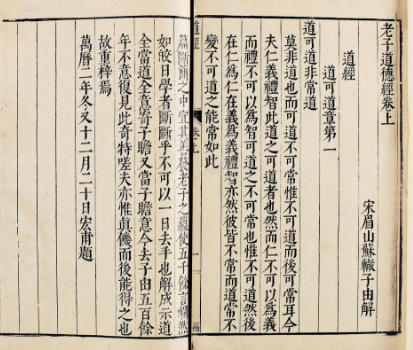 老子道德經卷上
宋眉山蘇轍子由解
道經
道可道章第一
道可道非常道
莫非道也而可道不可常惟不可道而後可常耳今
夫仁義禮智此道之可道者也然而仁不可以爲義
而禮不可以爲智可道之不可常也惟不可道然後
在仁爲仁在義爲義禮智亦然彼皆不常而道常不
變不可道之能常如此
道經
卷上
一
篇斷簡之中宜其善發老子之蘊使五千餘言爛然
如皎日學者斷斷乎不可以一日去手也解成示道
全當道全意寄子瞻又當子瞻意今去子由五百餘
年不意復見此奇特嗟夫亦惟真饑而後能得之也
故重梓焉
萬曆二年冬又十二月二十日宏甫題